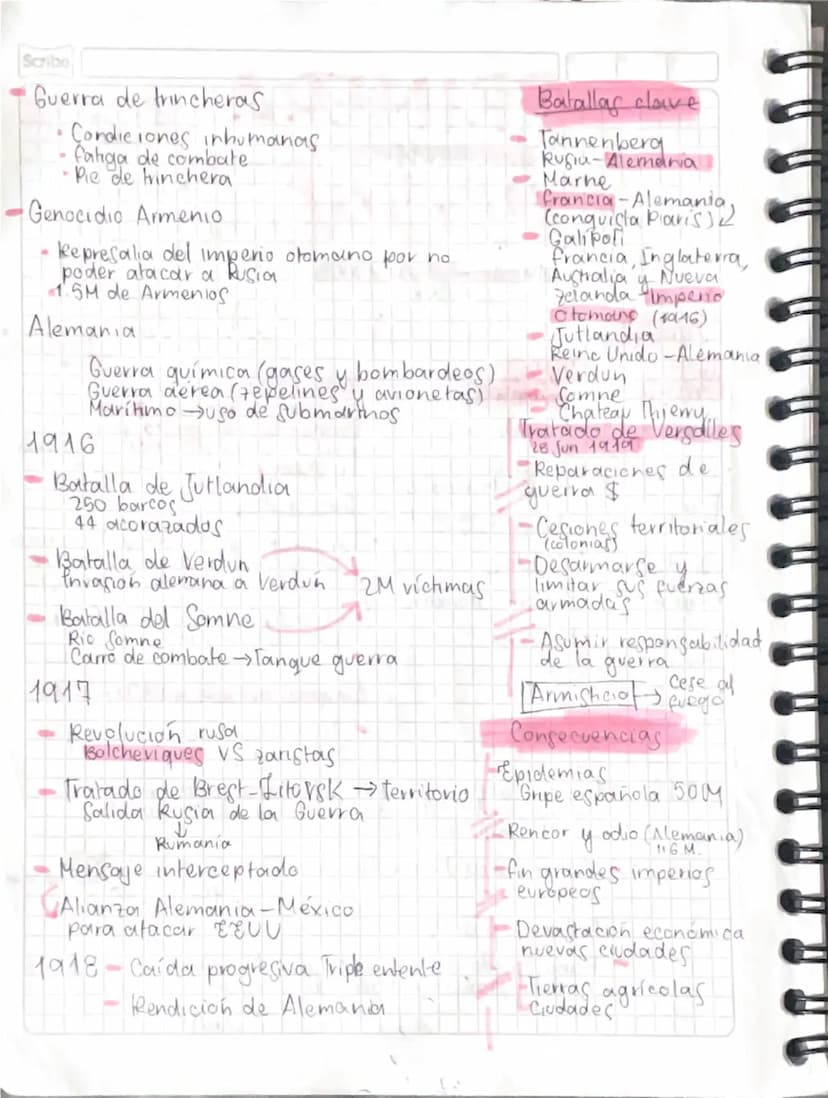 Scribe
Guerra de trincheras
Condiciones inhumanas
fatiga de combate
Pie de trinchera
Genocidio Armenio
Represalia del imperio otomano por no
poder atacar a Rusia
1.5M de Armenios
Alemania
Guerra química (gases y bombardeos)
Guerra aérea (zepelines y avionetas)
Marítimo → uso de submarinos
1916
Batalla de Jutlandia
250 barcos
44 acorazados
Batalla de Verdun
Invasión alemana a Verdun
2M víctimas
Batalla del Somne
Rio Somne
Carro de combate → Tanque guerra
1917
Revolución rusa
Bolcheviques VS zaristas
Tratado de Brest-Litovsk → territorio
Salida Rusia de la Guerra
↓
Rumania
Mensaje interceptado
Alianza Alemania-México
para atacar EEUU
1918 - Caída progresiva Triple entente
- Rendición de Alemania
Batallas clave
- Tannenberg
Rusia-Alemania
- Marne
francia-Alemania,
(conquista Piaris)
- Galípoli
francia, Inglaterra,
Australia y Nueva
zelanda-Imperio
Otomano (1916)
- Jutlandia
Reino Unido-Alemania
- Verdun
- Somne
- Chateau Thierry
Tratado de Versalles
28 Jun 1919
- Reparaciones de
guerra $
- Cesiones territoriales
(colonias)
- Desarmarse y
limitar sus fuerzas
armadas
- Asumir responsabilidad
de la guerra
Armisticio → cese al
fuego
Consecuencias
Epidemias
Gripe española 50M
- Rencor y odio (Alemania)
- fin grandes imperios
europeos
- Devastación económica
nuevas ciudades
- Tierras agrícolas
Ciudades